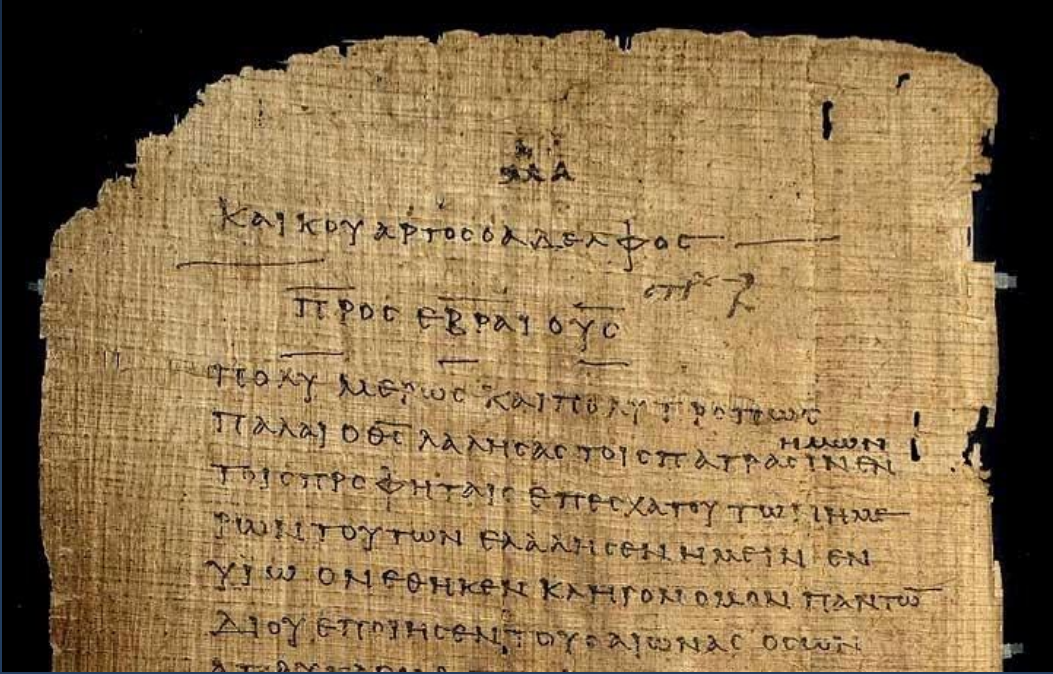 ΜΑ
ΚΑΙ ΚΟΥΑΡΤΟC Ο ΑΔΕΛΦΟC
ΠΡΟC ΕΒΡΑΙΟΥC
ΠΟΛΥΜΕΡΩC ΚΑΙ ΠΟΛΥΤΡΟΠΩC
ΗΜΩΝ
ΠΑΛΑΙ Ο Θ̅C̅ ΛΑΛΗCΑC ΤΟΙC ΠΑΤΡΑCΙΝ ΕΝ
ΤΟΙC ΠΡΟΦΗΤΑΙC ΕΠ ΕCΧΑΤΟΥ ΤΩΝ ΗΜΕ
ΡΩΝ ΤΟΥΤΩΝ ΕΛΑΛΗCΕΝ ΗΜΕΙΝ ΕΝ
ΥΙΩ ΟΝ ΕΘΗΚΕΝ ΚΛΗΡΟΝΟΜΟΝ ΠΑΝΤΩ̅
ΔΙ ΟΥ ΕΠΟΙΗCΕΝ ΤΟΥC ΑΙΩΝΑC ΟC ΩΝ